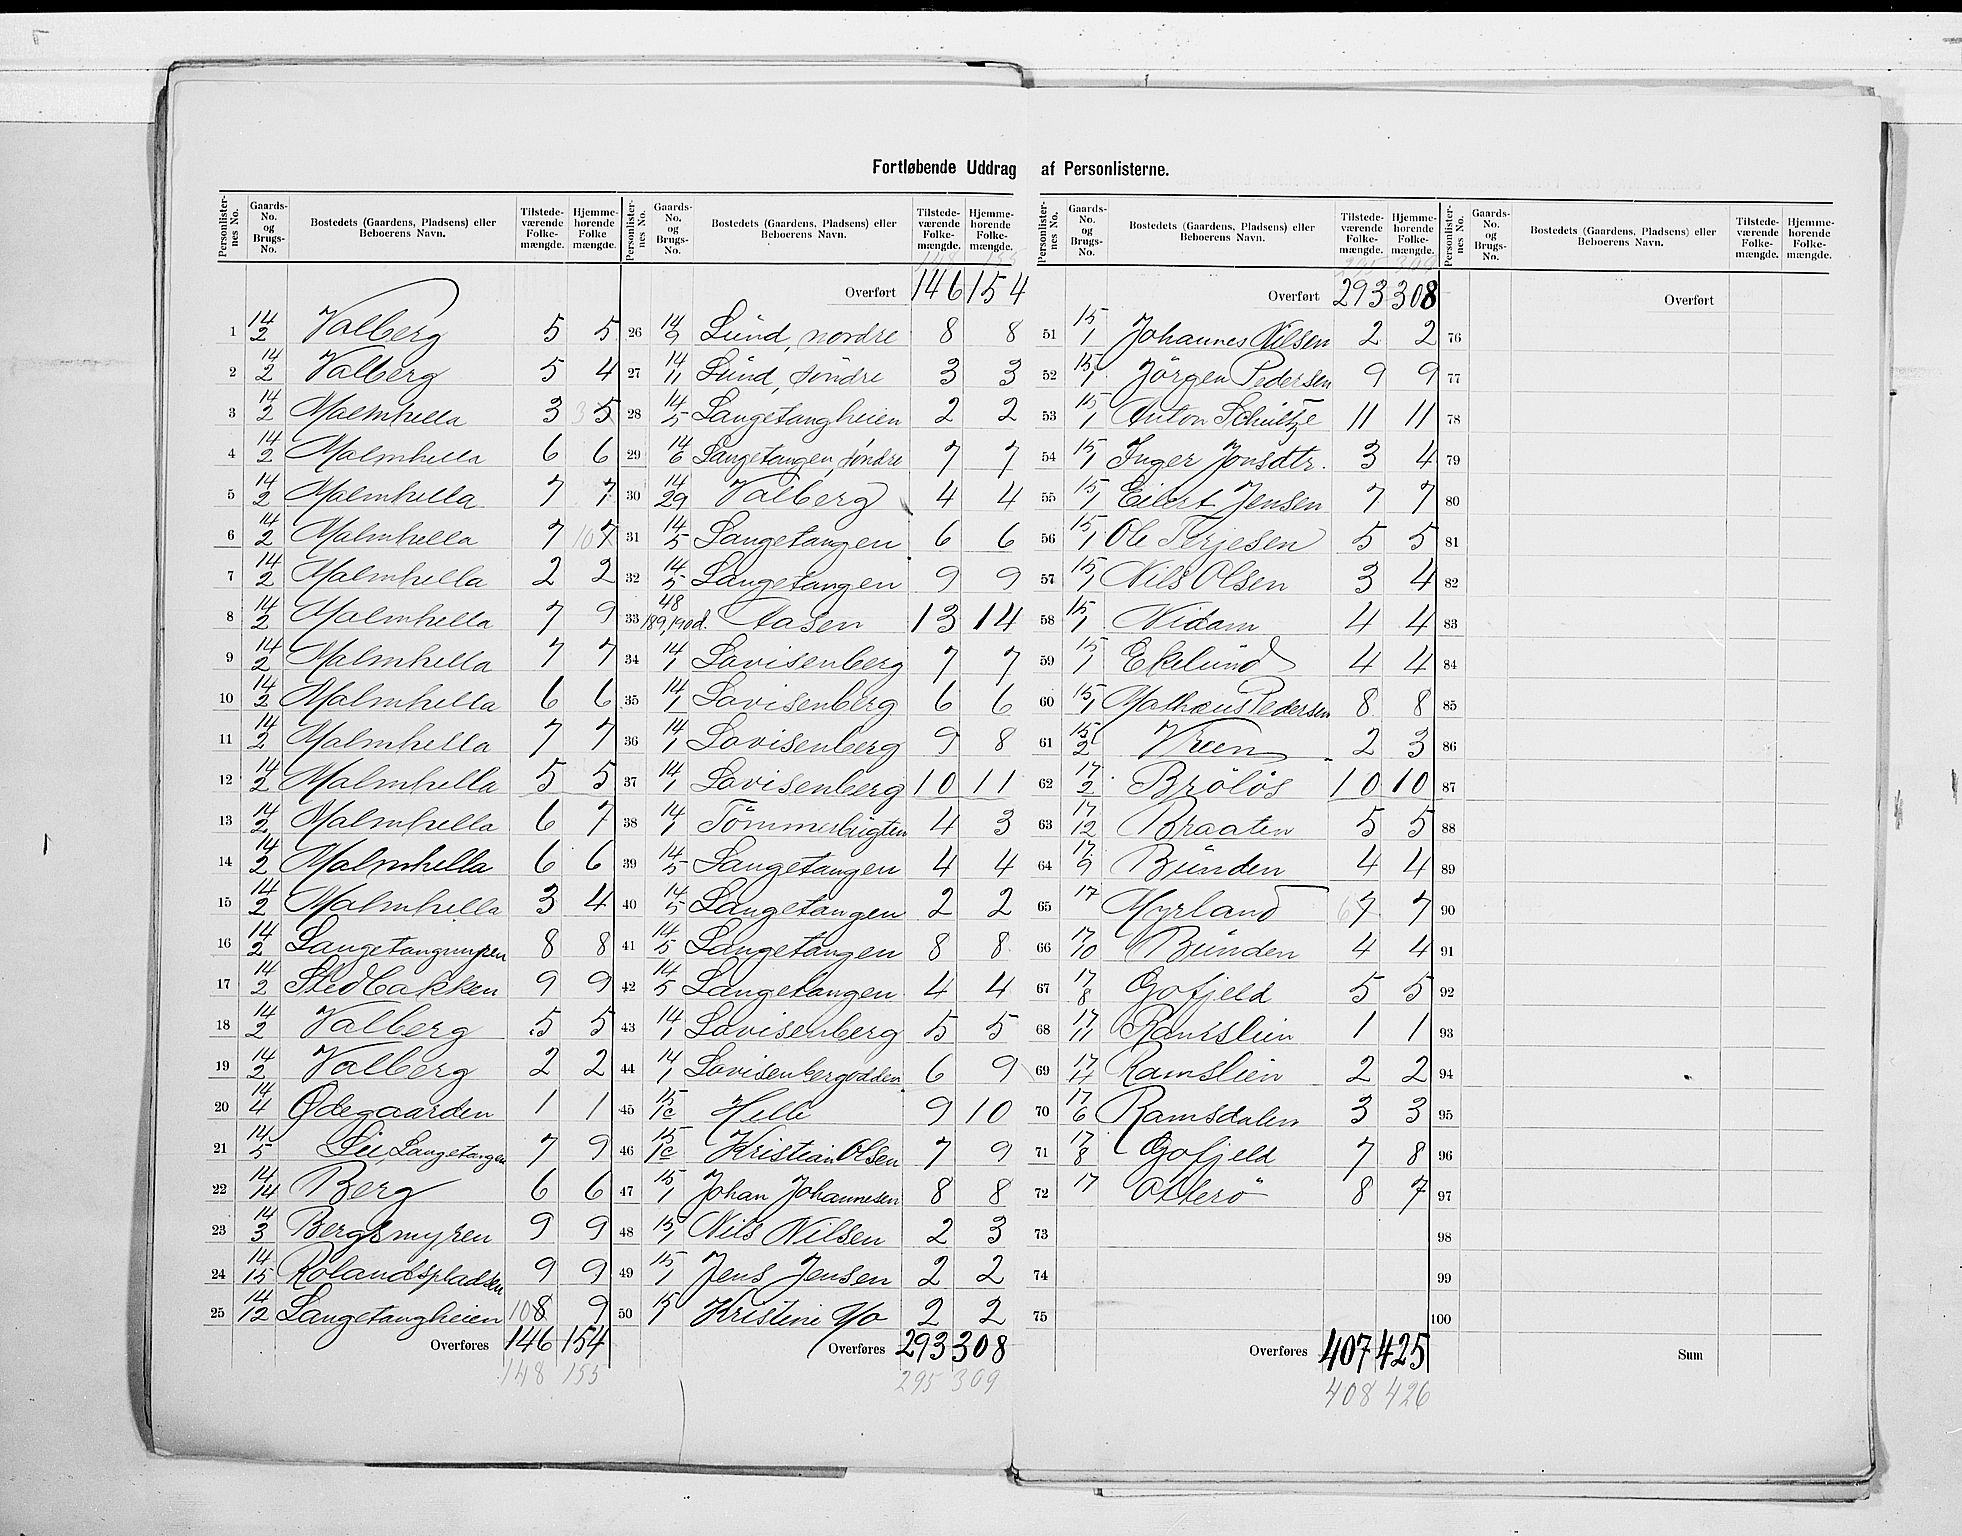 Fortløbende Uddrag af Personlisterne.
Personlisternes No. Gaards-No. og Brugs-No. Bostedets (Gaardens, Pladsens) eller Beboerens Navn. Tilstedeværende Folkemængde. Hjemmehørende Folkemængde.
1 14/2 Valberg 5 5
2 14/2 Valberg 5 4
3 14/2 Malmhella 3 5
4 14/2 Malmhella 6 6
5 14/2 Malmhella 7 7
6 14/2 Malmhella 7 7
7 14/2 Malmhella 2 2
8 14/2 Malmhella 7 9
9 14/2 Malmhella 7 7
10 14/2 Malmhella 6 6
11 14/2 Malmhella 7 7
12 14/2 Malmhella 5 5
13 14/2 Malmhella 6 7
14 14/2 Malmhella 6 6
15 14/2 Malmhella 3 4
16 14/2 Langetangmyren 8 8
17 14/2 Stedbakken 9 9
18 14/2 Valberg 5 5
19 14/2 Valberg 2 2
20 14/4 Ødegaarden 1 1
21 14/5 Lie, Langetangen 7 9
22 14/14 Berg 6 6
23 14/3 Bergsmyren 9 9
24 14/15 Rolandspladsen 9 9
25 14/12 Langetangheien 10 8 9
Overføres 146 154
148 155
Personlisternes No. Gaards-No. og Brugs-No. Bostedets (Gaardens, Pladsens) eller Beboerens Navn. Tilstedeværende Folkemængde. Hjemmehørende Folkemængde.
Overført 146 154
26 14/9 Lund, nordre 8 8
27 14/11 Lund, søndre 3 3
28 14/5 Langetangheien 2 2
29 14/6 Langetangen, søndre 7 7
30 14/29 Valberg 4 4
31 14/5 Langetangen 6 6
32 14/5 Langetangen 9 9
33 48/189,190d. Aasen 13 14
34 14/1 Lovisenberg 7 7
35 14/1 Lovisenberg 6 6
36 14/1 Lovisenberg 9 8
37 14/1 Lovisenberg 10 11
38 14/1 Tömmerbugten 4 3
39 14/5 Langetangen 4 4
40 14/5 Langetangen 2 2
41 14/5 Langetangen 8 8
42 14/5 Langetangen 4 4
43 14/1 Lovisenberg 5 5
44 14/1 Lovisenbergodden 6 9
45 15/1c Helle 9 10
46 15/1c Kristian Olsen 7 9
47 15/1 Johan Johannesen 8 8
48 15/1 Nils Nilsen 2 3
49 15/1 Jens Jensen 2 2
50 15/1 Kristine Mo 2 2
Overføres 293 308
295 309
Personlisternes No. Gaards-No. og Brugs-No. Bostedets (Gaardens, Pladsens) eller Beboerens Navn. Tilstedeværende Folkemængde. Hjemmehørende Folkemængde.
295 309
Overført 293 308
51 15/1 Johannes Nilsen 2 2
52 15/1 Jörgen Pedersen 9 9
53 15/1 Anton Schultze 11 11
54 15/1 Inger Jonsdtr. 3 4
55 15/1 Eilert Jensen 7 7
56 15/1 Ole Terjesen 5 5
57 15/1 Nils Olsen 3 4
58 15/1 Nidam 4 4
59 15/1 Ekelund 4 4
60 15/1 Mathæus Pedersen 8 8
61 15/2 Vreen 2 3
62 17/2 Bröløs 10 10
63 17/12 Braaten 5 5
64 17/9 Bunden 4 4
65 17 Myrland 6 7 7
66 17/10 Bunden 4 4
67 17/8 Gofjeld 5 5
68 17/11 Ramslien 1 1
69 17/4 Ramslien 2 2
70 17/6 Ramsdalen 3 3
71 17/8 Gofjeld 7 8
72 17 Otterö 8 7
73
74
75
Overføres 407 425
408 426
Personlisternes No. Gaards-No. og Brugs-No. Bostedets (Gaardens, Pladsens) eller Beboerens Navn. Tilstedeværende Folkemængde. Hjemmehørende Folkemængde.
Overført
76
77
78
79
80
81
82
83
84
85
86
87
88
89
90
91
92
93
94
95
96
97
98
99
100
Sum